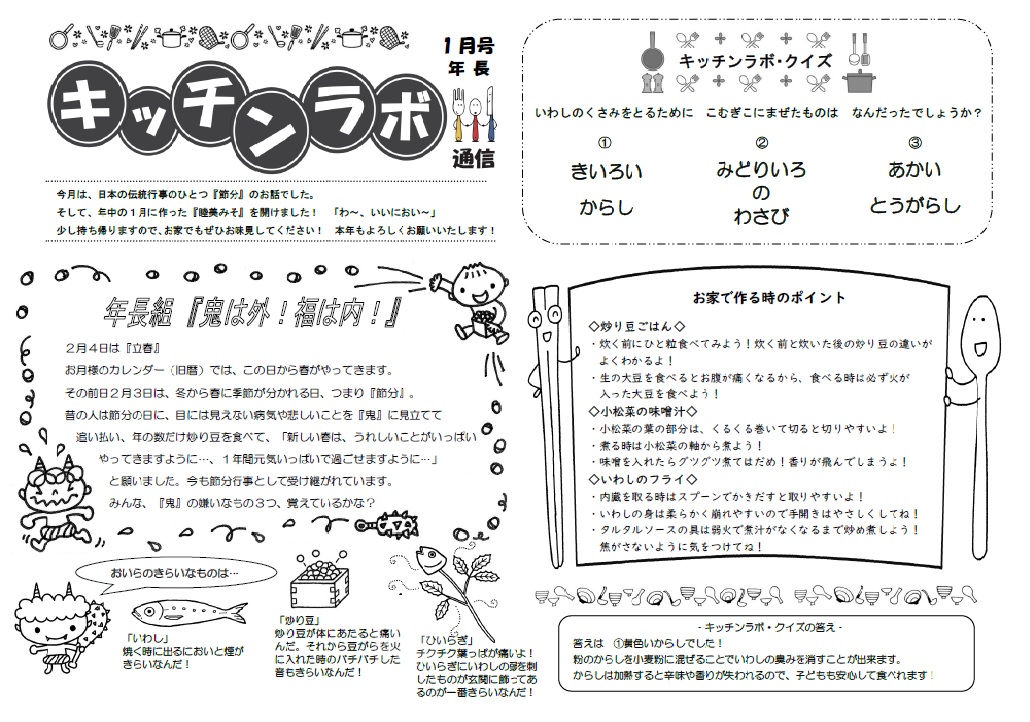 1月号
年長
キッチンラボ
通信
今月は、日本の伝統行事のひとつ『節分』のお話でした。
そして、年中の１月に作った『睦美みそ』を開けました！　「わ～、いいにおい～」
少し持ち帰りますので、お家でもぜひお味見してください！　本年もよろしくお願いいたします！
年長組『鬼は外！福は内！』
２月４日は『立春』
お月様のカレンダー（旧暦）では、この日から春がやってきます。
その前日２月３日は、冬から春に季節が分かれる日、つまり『節分』。
昔の人は節分の日に、目には見えない病気や悲しいことを『鬼』に見立てて
追い払い、年の数だけ炒り豆を食べて、「新しい春は、うれしいことがいっぱい
やってきますように…、１年間元気いっぱいで過ごせますように…」
と願いました。今も節分行事として受け継がれています。
みんな、『鬼』の嫌いなもの３つ、覚えているかな？
おいらのきらいなものは…
「いわし」
焼く時に出るにおいと煙が
きらいなんだ！
「炒り豆」
炒り豆が体にあたると痛い
んだ。それから豆がらを火
に入れた時のパチパチした
音もきらいなんだ！
「ひいらぎ」
チクチク葉っぱが痛いよ！
ひいらぎにいわしの頭を刺
したものが玄関に飾ってあ
るのが一番きらいなんだ！
キッチンラボ・クイズ
いわしのくさみをとるために　こむぎこにまぜたものは　なんだったでしょうか？
①　②　③
きいろい　みどりいろ　あかい
の
からし　わさび　とうがらし
お家で作る時のポイント
◇炒り豆ごはん◇
・炊く前にひと粒食べてみよう！炊く前と炊いた後の炒り豆の違いが
よくわかるよ！
・生の大豆を食べるとお腹が痛くなるから、食べる時は必ず火が
入った大豆を食べよう！
◇小松菜の味噌汁◇
・小松菜の葉の部分は、くるくる巻いて切ると切りやすいよ！
・煮る時は小松菜の軸から煮よう！
・味噌を入れたらグツグツ煮てはだめ！香りが飛んでしまうよ！
◇いわしのフライ◇
・内臓を取る時はスプーンでかきだすと取りやすいよ！
・いわしの身は柔らかく崩れやすいので手開きはやさしくしてね！
・タルタルソースの具は弱火で煮汁がなくなるまで炒め煮しよう！
焦がさないように気をつけてね！
- キッチンラボ・クイズの答え -
答えは　①黄色いからしでした！
粉のからしを小麦粉に混ぜることでいわしの臭みを消すことが出来ます。
からしは加熱すると辛味や香りが失われるので、子どもも安心して食べれます！